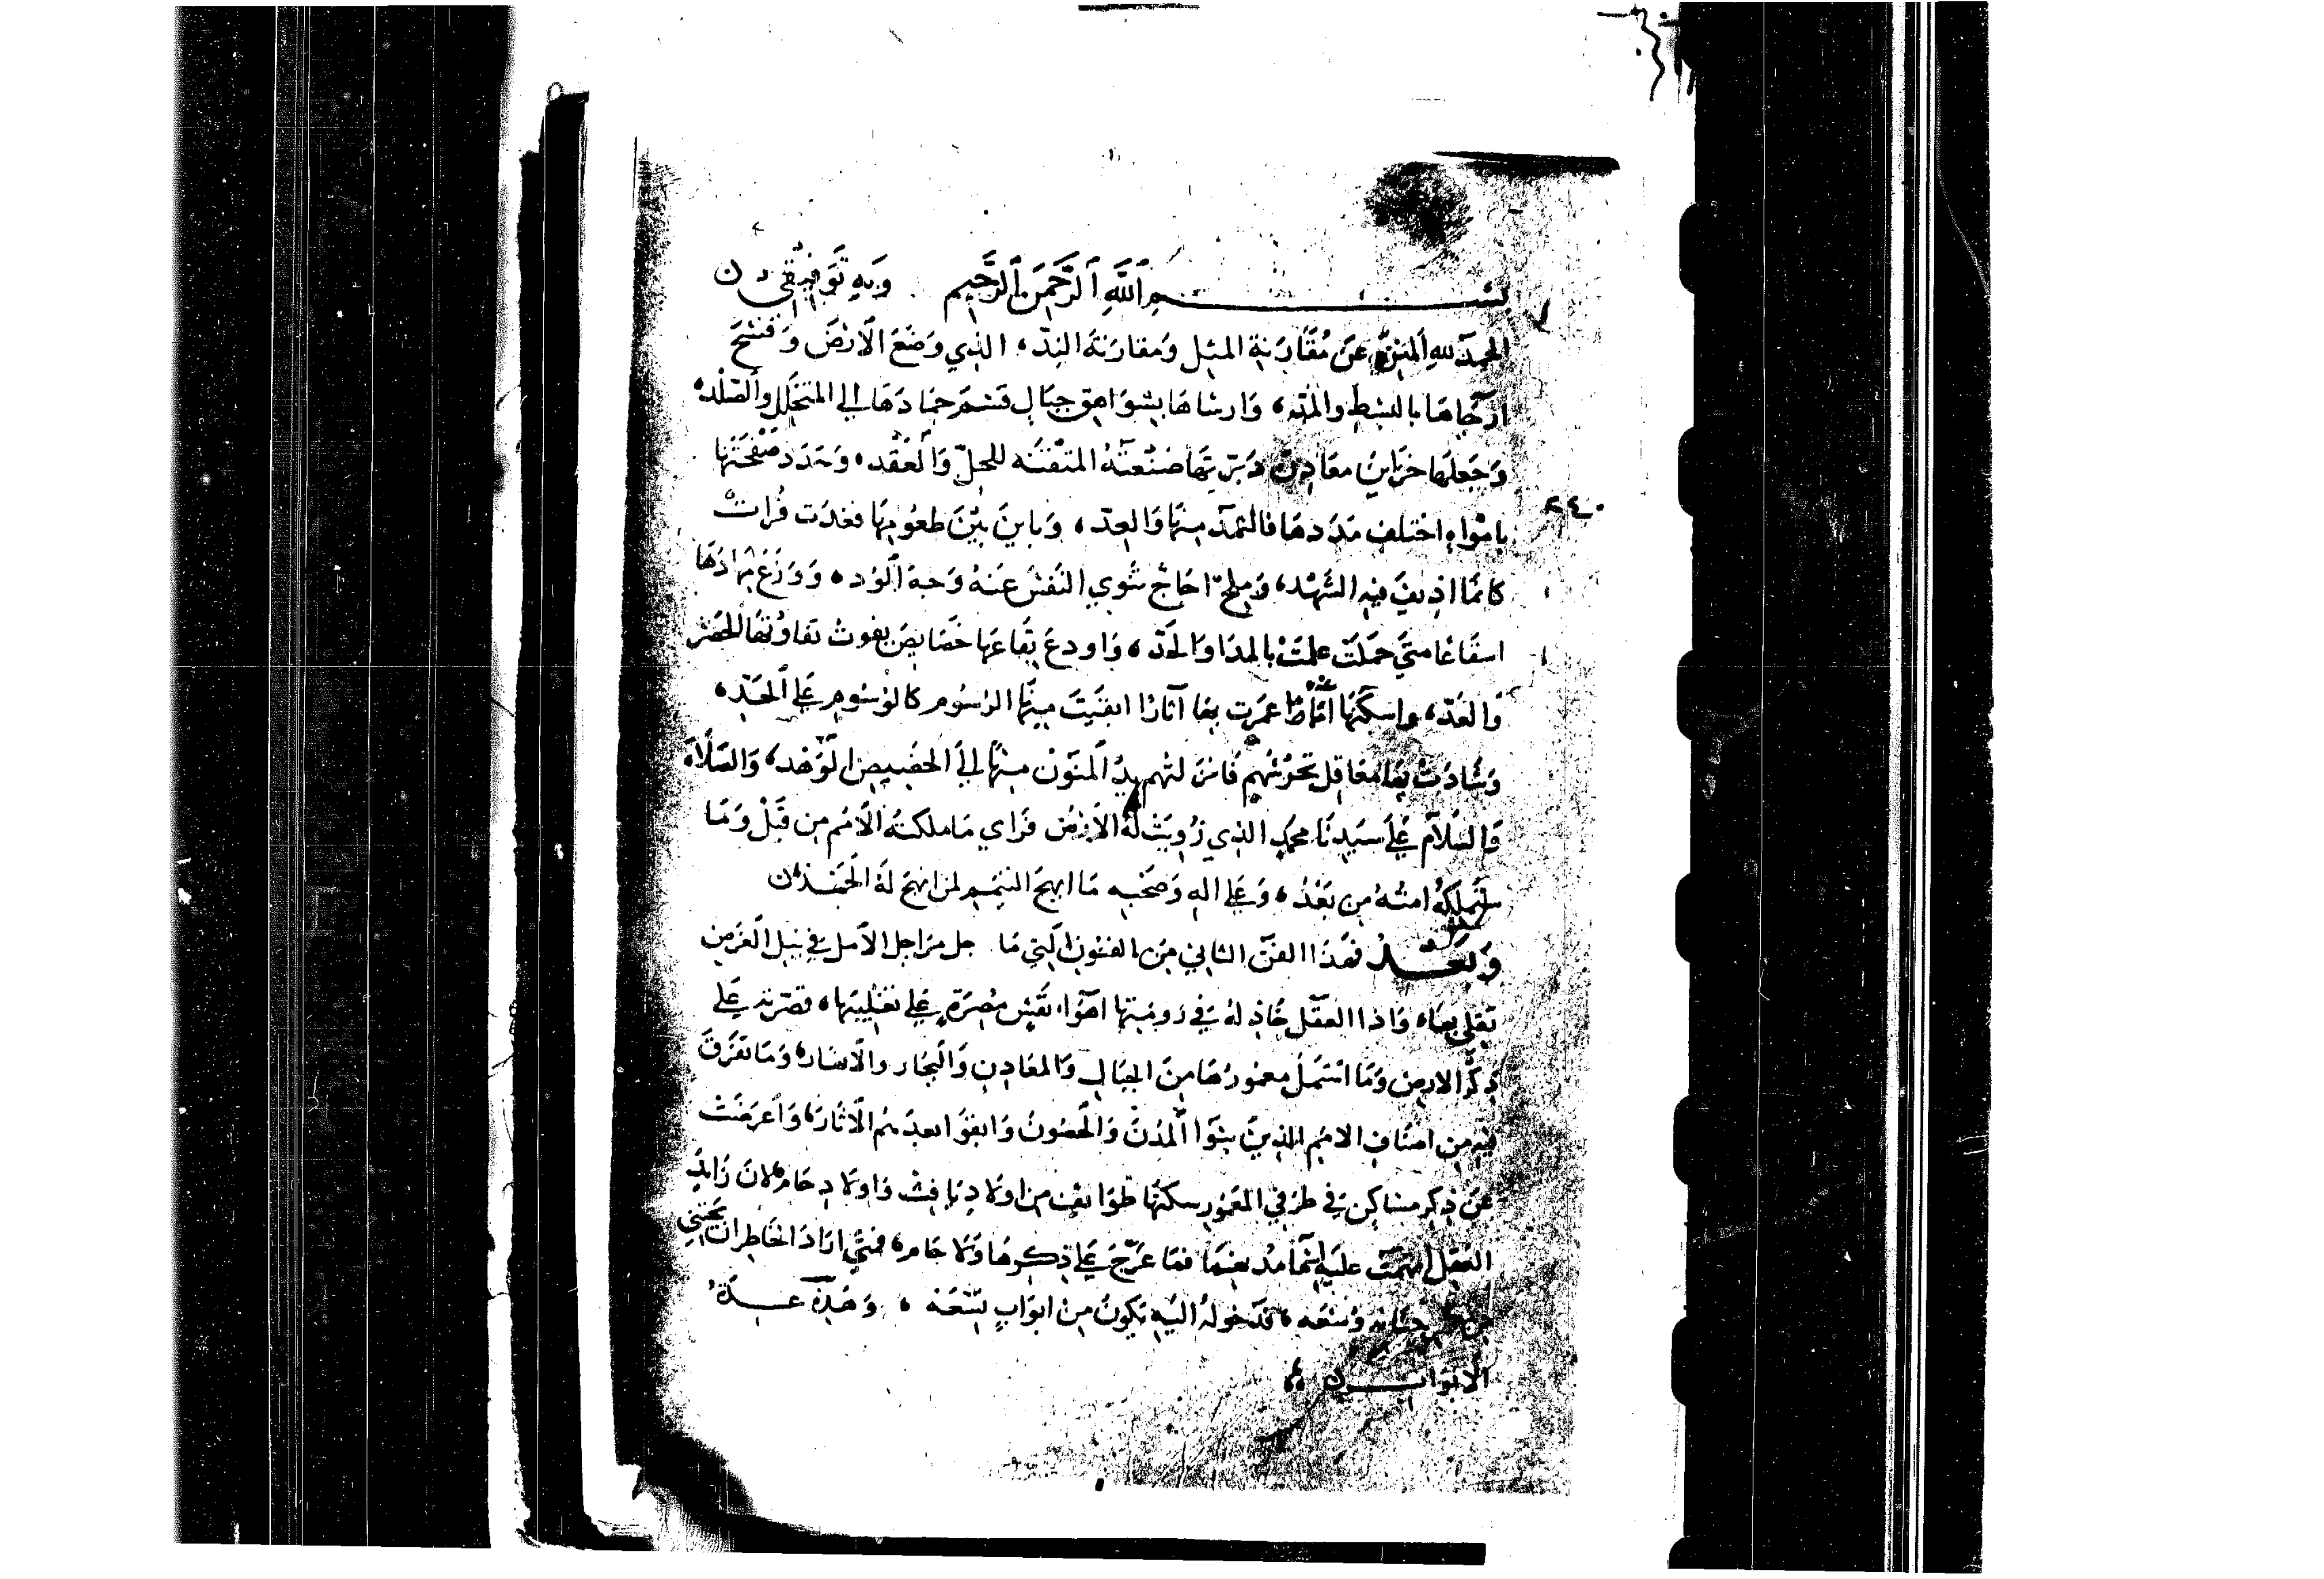 بسم الله الرحمن الرحيم وبه توفيقي
الحمد لله المنزه عن مقارنة المثل ومقارنة الند، الذي وضع الارض وفسح
ارجاها بالبسط والمد، وارساها بشواهق جبال قسم جمادها الي المتخلل والصلد،
وجعلها خزاين معادن دبرتها صنعته المتقنه للحل والعقد، ومدد صفحتها
بامواه اختلف مددها فالثمد منها والعد، وباين بين طعومها فغدت فرات
كانما اذيف فيه الشهد، وملح اجاج تنوي النفس عنه وجه الود، ووزع مهادها
اسقاعا متي حملت علمت بالمدا والحد، واودع بقاعها خصايص يفوت تفاوتها الحصر
والعد، واسكنها امما عمرت بها آثارا ابقيت مينها الرسوم كالوسوم علي الخد،
وشادت بها معاقل تحوتهم فانزلتهم يد المنون منها الي الحضيض الوهد، والصلاة
والسلام علي سيدنا محمد الذي زويت له الارض فراي ما ملكته الامم من قبل وما
ستملكه امته من بعد، وعلي اله وصحبه ما ابهج النسيم لمن انهج له الحمد
وبعد فهذا الفن الثاني من الفنون التي ما جل مراجل الامل في نيل الغرض
تغلي بها، واذا العقل خاذله في رومتها اهوا نفس مصرة علي تغليبها، قصرته علي
ذكر الارض وما اشتمل معمورها من الجبال والمعادن والبحار والانهار، وما تفرق
فيه من اصناف الامم الذين بنوا المدن والحصون وابقوا بعدهم الاثار، واعرضت
عن ذكر مساكن في طرفي المعمور سكنها طوايف من اولاد يافث واولاد حام، لان زايد
العقل اتهمت عليه انجادها فما عرج علي ذكرها ولا حام، فمتي اراد الخاطر ان يجتني
من وسعه، فدخوله اليه يكون من ابواب تسعه، وهذه عدة
الابواب
٢٤٠